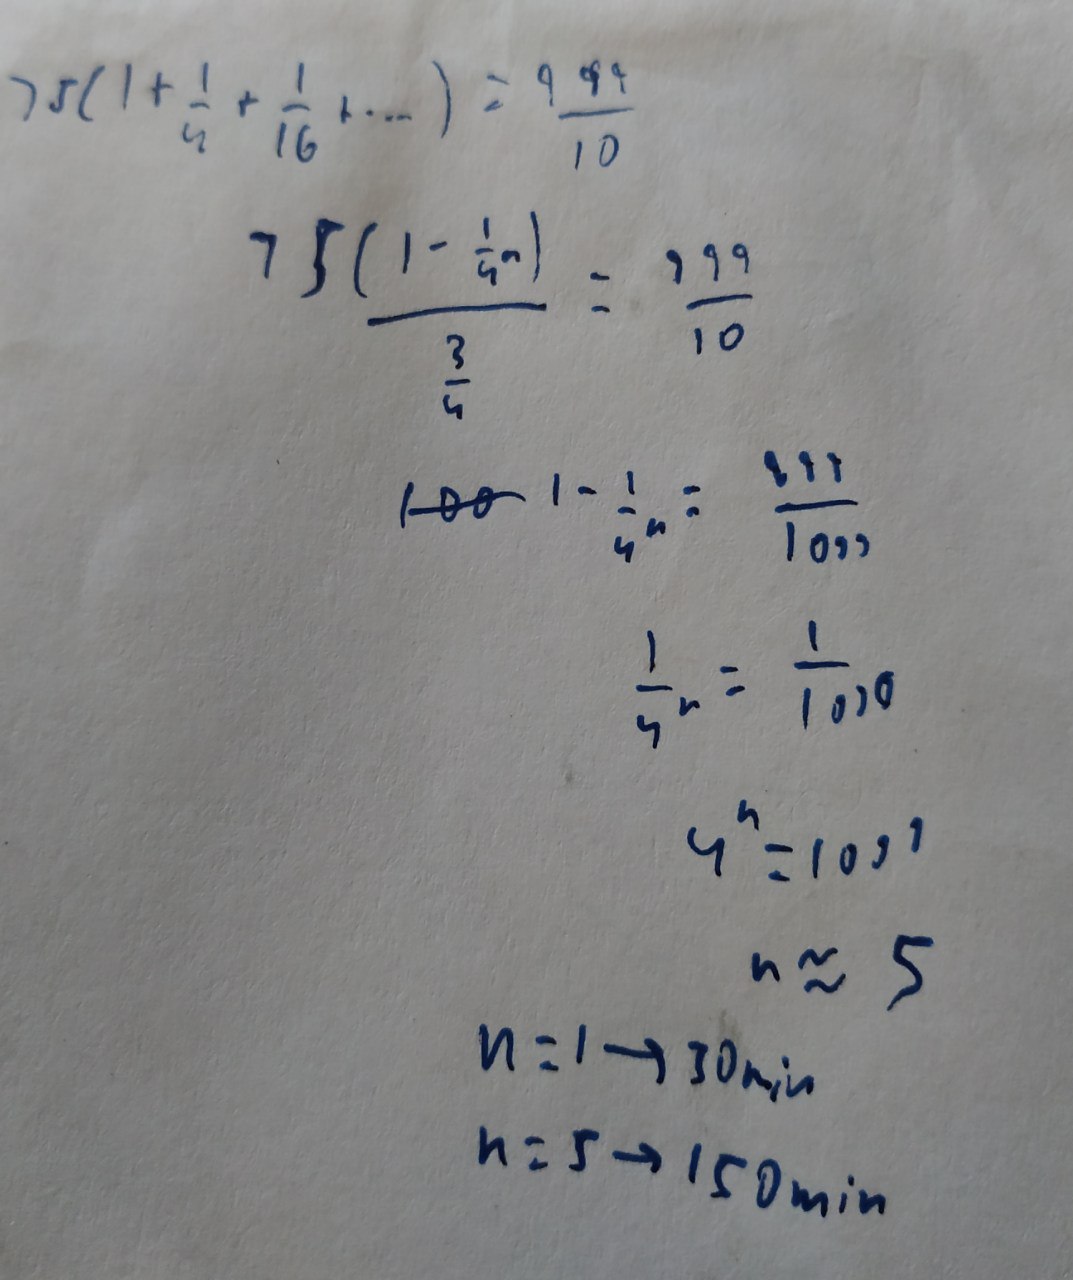 75(1 + 1/4 + 1/16 + ...) = 999/10
75(1 - 1/4^n) / (3/4) = 999/10
1 - 1/4^n = 999/1000
1/4^n = 1/1000
4^n = 1000
n ≈ 5
n = 1 → 30min
n = 5 → 150min